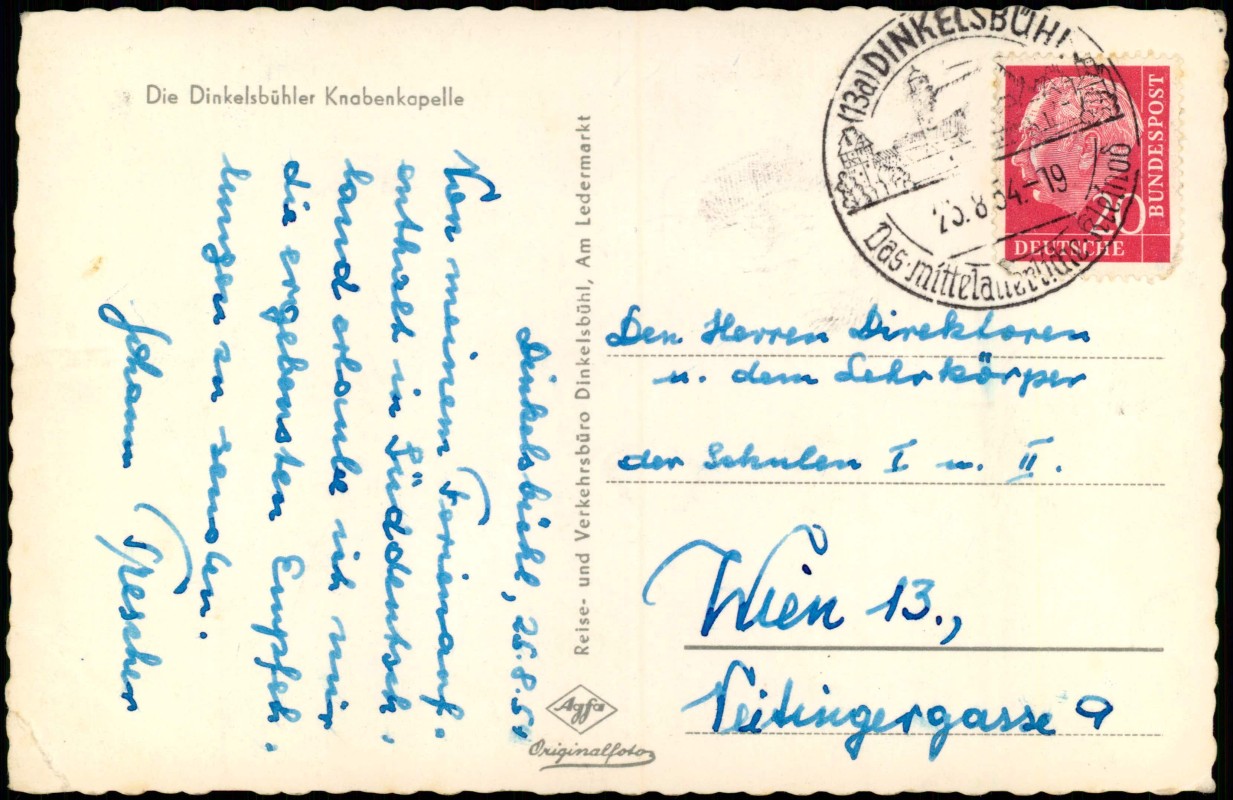 Die Dinkelsbühler Knabenkapelle
Dinkelsbühl, 25.8.54
Von meinem Ferienauf-
enthalt in Süddeutsch-
land erlaube ich mir
die ergebensten Empfeh-
lungen zu senden.
Johann Trescher
Reise- und Verkehrsbüro Dinkelsbühl, Am Ledermarkt
Agfa
Originalfoto
(13a) DINKELSBÜHL
25.8.54.-19
Das mittelalterliche
DEUTSCHE
BUNDESPOST
Den Herren Direktoren
u. dem Lehrkörper
der Schulen I u. II.
Wien 13.,
Veitingergasse 9